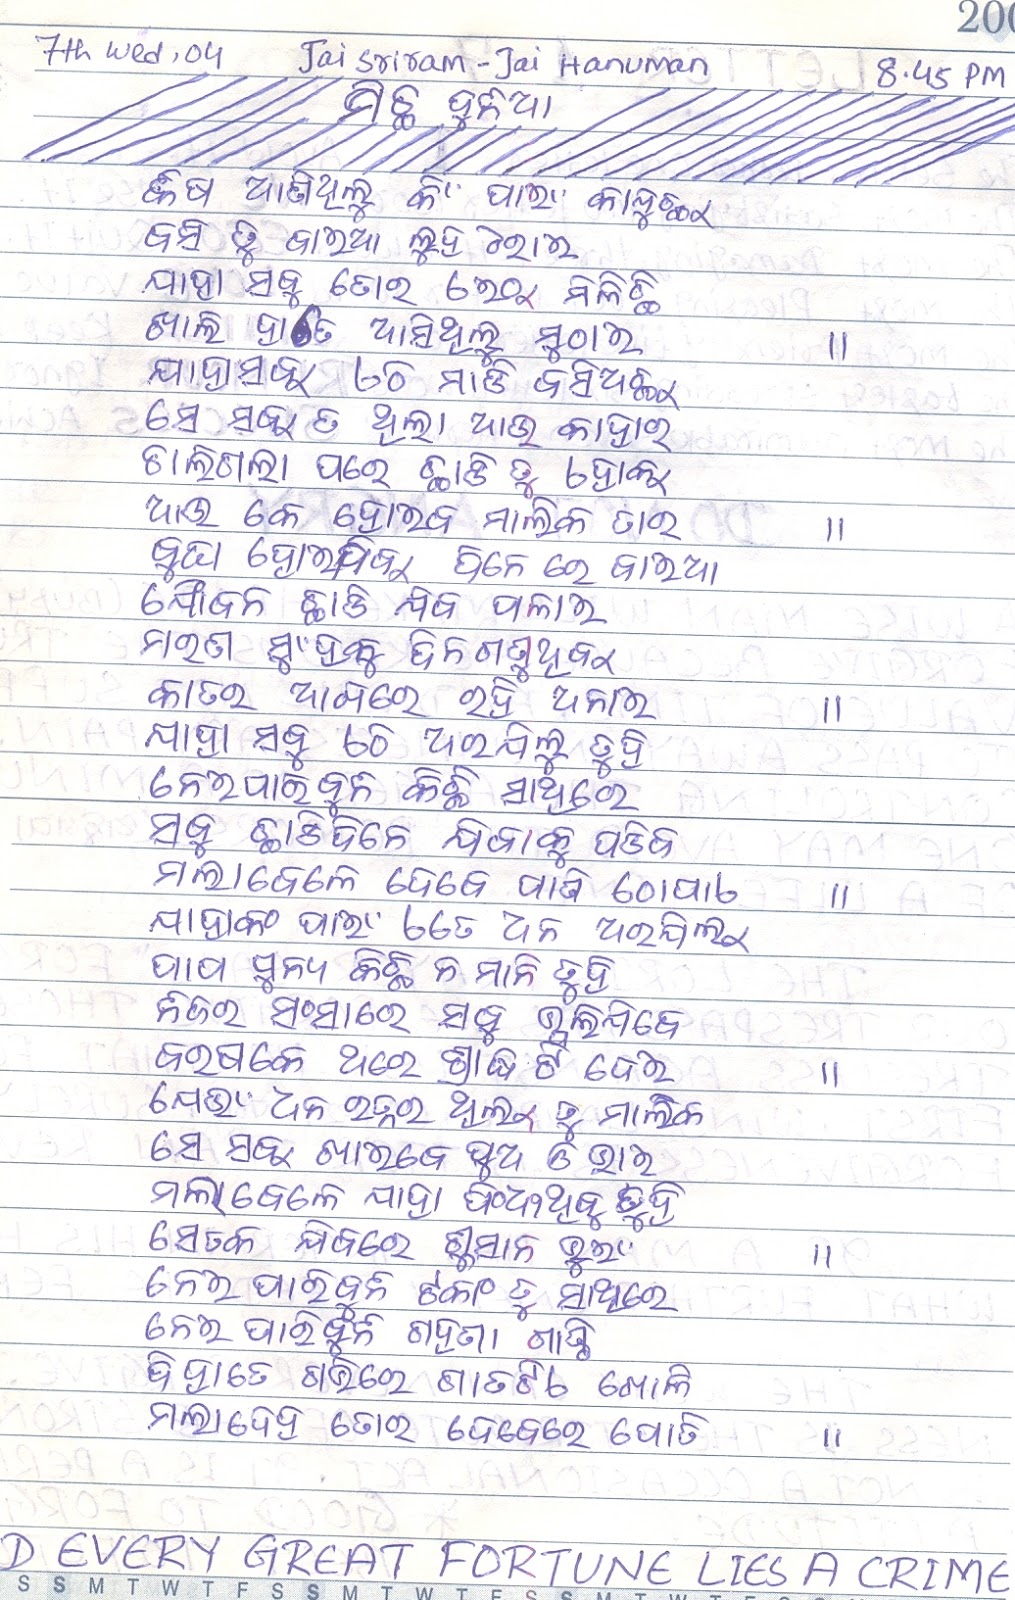 200
7th wed, 04 Jai sriram - Jai Hanuman 8.45 PM
ମିଛ ଦୁନିଆ
କିଏ ଆଣିଥିଲୁ କି ପାଇଁ କାନ୍ଦୁଛୁ
ବସି ତୁ ବାଇଆ ଲୁହ ଝରାଇ
ଯାହା ସବୁ ତୋର ଏଠି ମିଳିଛି
ଖାଲି ହାତେ ଆସିଥିଲୁ ସୁଠାଇ ॥
ଯାହାସବୁ ଏଠି ମାଡି ବସିଅଛୁ
ସେ ସବୁ ତ ଥିଲା ଆଉ କାହାର
ଚାଲିଗଲା ପରେ ଛାଡି ତୁ ଏହାକୁ
ଆଉ କେ ହୋଇବ ମାଲିକ ତାର ॥
ବୁଢା ହୋଇଯିବୁ ଦିନେ ରେ ବାଇଆ
ଯୌବନ ଛାଡି ଯିବ ପଳାଇ
ମରଣ ମୁଂହକୁ ଦିନ ଗଣୁଥିବୁ
କାତର ଆଖିରେ ରହି ଅନାଇ ॥
ଯାହା ସବୁ ଏଠି ଅରଜିଲୁ ତୁହି
ନେଇପାରିବୁନି କିଛି ସାଥିରେ
ସବୁ ଛାଡିଦିନେ ଯିବାକୁ ପଡିବ
ମଲାବେଳେ ଦେବେ ପାଣି ଟୋପାଏ ॥
ଯାହାକଂ ପାଇଁ ଏତେ ଧନ ଅରଜିଲୁ
ପାପ ପୁନ୍ୟ କିଛି ନ ମାନି ତୁହି
ନିଜର ସଂସାରେ ସବୁ ଭୁଲିଯିବେ
ବରଷକେ ଥରେ ଶ୍ରାଦ୍ଧ ଟି ଦେଇ ॥
ଯେଉଁ ଧନ ରତ୍ନର ଥିଲୁ ତୁ ମାଲିକ
ସେ ସବୁ ଖାଇବେ ପୁଅ ଓ ଭାଇ
ମଲାବେଳେ ଯାହା ପିଂଧିଥିବୁ ତୁହି
ସେତକ ଯିବରେ ଶ୍ମସାନ ଭୁଇଁ ॥
ନେଇ ପାରିବୁନି ଟଂକା ତୁ ସାଥିରେ
ନେଇ ପାରିବୁନି ଗହଣା ଗାଣ୍ଠି
ଦିହାତେ ଗଭିରେ ଗାତଟିଏ ଖୋଳି
ମଲାଦେହ ତୋର ଦେବେରେ ପୋତି ॥
D EVERY GREAT FORTUNE LIES A CRIME
S S M T W T F S S M T W T F S S M T W T F